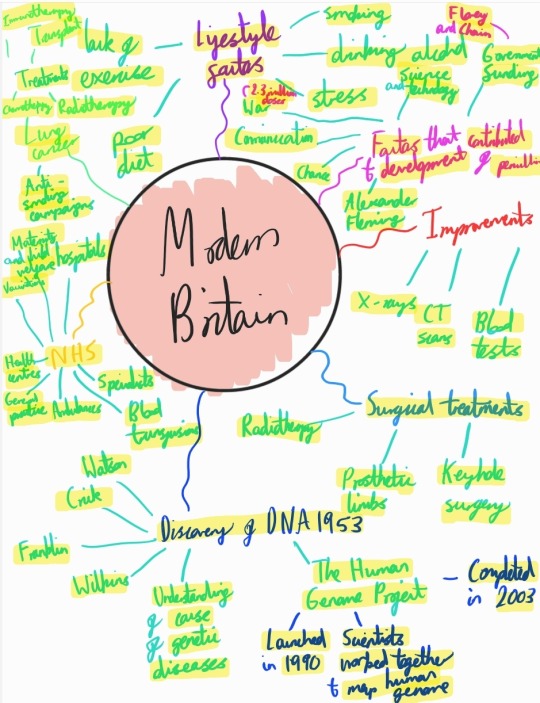 Modern
Britain
Lifestyle
factors
smoking
drinking alcohol
stress
lack of
exercise
poor
diet
Florey
and Chain
Government
funding
Science
and technology
(2.3 million
doses
War
Communication
Chance
Factors that contributed
to development of penicillin
Alexander
Fleming
Improvements
X-rays
CT
scans
Blood
tests
Surgical treatments
Radiotherapy
Prosthetic
limbs
Keyhole
surgery
Discovery of DNA 1953
Watson
Crick
Franklin
Wilkins
Understanding
of cause
of genetic
diseases
The Human
Genome Project
Completed
in 2003
Launched
in 1990
Scientists
worked together
to map human
genome
NHS
Maternity
and child
welfare
hospitals
Vaccinations
Health
centres
General
practice
Ambulances
Specialists
Blood
transfusions
Lung
cancer
Anti-
smoking
campaigns
Treatments
Immunotherapy
Transplant
Chemotherapy
Radiotherapy